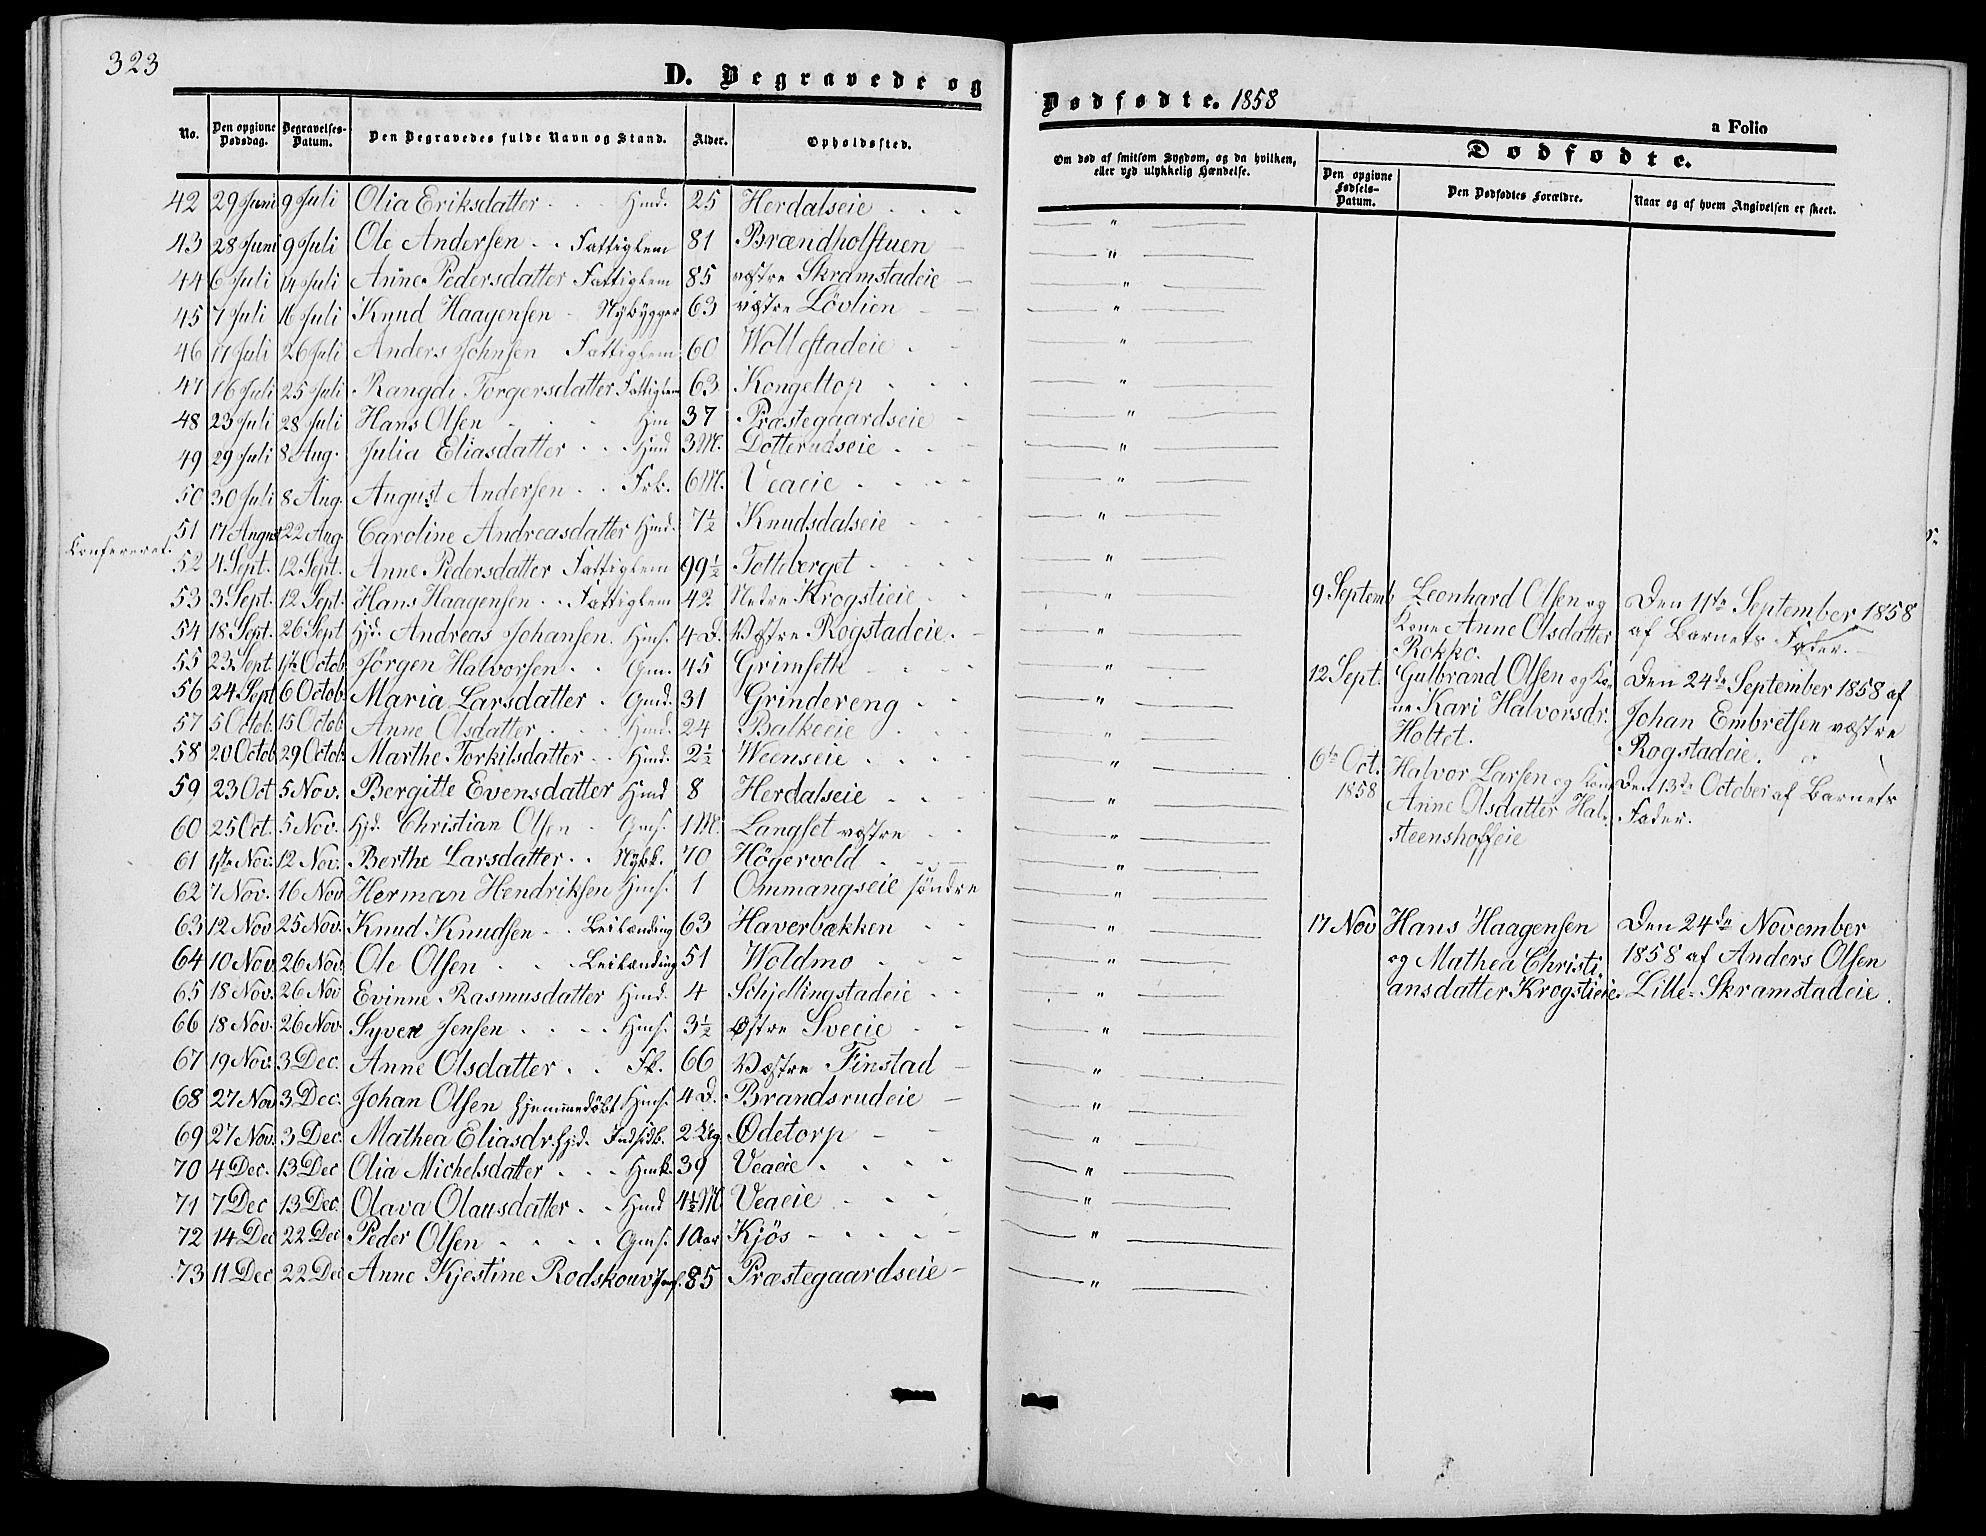 323
D. Begravede og
No. Den opgivne Dødsdag. Begravelses-Datum. Den Begravedes fulde Navn og Stand. Alder. Opholdssted.
42 29 Juni 9 Juli Olia Eriksdatter - - Hmd. 25 Herdalseie - - -
43 28 Juni 9 Juli Ole Andersen - - Fattiglem 81 Brændholstuen -
44 6 Juli 14 Juli Anne Pedersdatter Fattiglem 85 vestre Skramstadeie -
45 7 Juli 16 Juli Knud Haagensen - Nybygger 63 vestre Lövlien - -
46 17 Juli 26 Juli Anders Johnsen Fattiglem 60 Wollestadeie - -
47 16 Juli 25 Juli Rangdi Torgersdatter Fattiglem 63 Kongeltop - - -
48 23 Juli 28 Juli Hans Olsen - - - Hm 37 Præstegaardseie -
49 29 Juli 8 Aug. Julia Eliasdatter - - Hmd 3 M. Dotterudseie - - -
50 30 Juli 8 Aug. August Andersen - - Frk. 6 M. Veaeie - - - -
51 17 August 22 Aug. Caroline Andreasdatter Hmd. 7½ Knudsdalseie - - -
Confereret.
52 4 Sept. 12 Sept. Anne Pedersdatter Fattiglem 99½ Totteberget - - - -
53 3 Sept. 12 Sept. Hans Haagensen - - Fattiglem 42 Nedre Krogstieie - -
54 18 Sept. 26 Sept Hjd. Andreas Johansen. Hms. 4 D. Vestre Rogstadeie. -
55 23 Sept 1ste Octob. Jörgen Halvorsen - - Gm. 45 Grimseth - - -
56 24 Sept 6 Octob. Maria Larsdatter - Gmd. 31 Grindereng - -
57 5 Octob. 15 Octob. Anne Olsdatter - - - Hmd. 24 Balkeeie - - -
58 20 Octob. 29 Octob. Marthe Torkilsdatter - - Hmd. 2½ Weenseie - - - -
59 23 Oct 5 Nov. Bergitte Evensdatter Hmd 8 Herdalseie - - -
60 25 Oct. 5 Nov. Hjd. Christian Olsen - Gms. 1 M. Langset vestre - -
61 1ste Nov. 12 Nov. Berthe Larsdatter - - Nybk. 70 Högervold - - - -
62 7 Nov. 16 Nov Herman Hendriksen Hms. 1 Ommangseie söndre
63 12 Nov 25 Nov. Knud Knudsen - - Leilænding 63 Haverbækken - -
64 10 Nov. 26 Nov. Ole Olsen - - - Leilænding 51 Woldmo - - -
65 18 Nov. 26 Nov Evinne Rasmusdatter Hmd. 4 Schjellingstadeie - -
66 18 Nov. 26 Nov. Syver Jensen - - - - Hms. 3½ Østre Sveeie - -
67 19 Nov. 3 Dec. Anne Olsdatter - - Fk. 66 Vestre Finstad -
68 27 Nov 3 Dec. Johan Olsen hjemmedöbt Hms. 4 D. Brandsrudeie -
69 27 Nov. 3 Dec. Mathea Eliasdr. Hjd. Indsidb. 2 Ug. Ødetorp - -
70 4 Dec. 13 Dec Olia Michelsdatter - - - Hmk. 39 Veaeie - - - -
71 7 Dec 13 Dec. Olava Olausdatter - - Hmd 4½ M Veaeie - - -
72 14 Dec 22 Dec Peder Olsen - - - - Gms. 1 Aar Kjös - - - - -
73 11 Dec 22 Dec Anne Kjestine Rodskouv 85 Præstegaardseie -
Dødfødte. 1858
a Folio
Om død af smitsom Sygdom, og da hvilken, eller ved ulykkelig Hændelse.
Dødfødte.
Den opgivne Fødsels-Datum. Den Dødfødtes Forældre. Naar og af hvem Angivelsen er skeet.
9 Septemb Leonhard Olsen og Den 11te September 1858
Kone Anne Olsdatter af Barnets Fader.
Rokko.
12 Sept. Gulbrand Olsen og Ko- Den 24de September 1858 af
ne Kari Halvorsdr. Johan Embretsen vestre
Holtet. Rogstadeie.
6te Oct. Halvor Larsen og Kone Den 13de October af Barnets
1858 Anne Olsdatter Hal- Fader.
steenshoffeie
17 Nov Hans Haagensen Den 24de November
og Mathea Christi- 1858 af Anders Olsen
ansdatter Krogstieie. Lille-Skramstadeie.